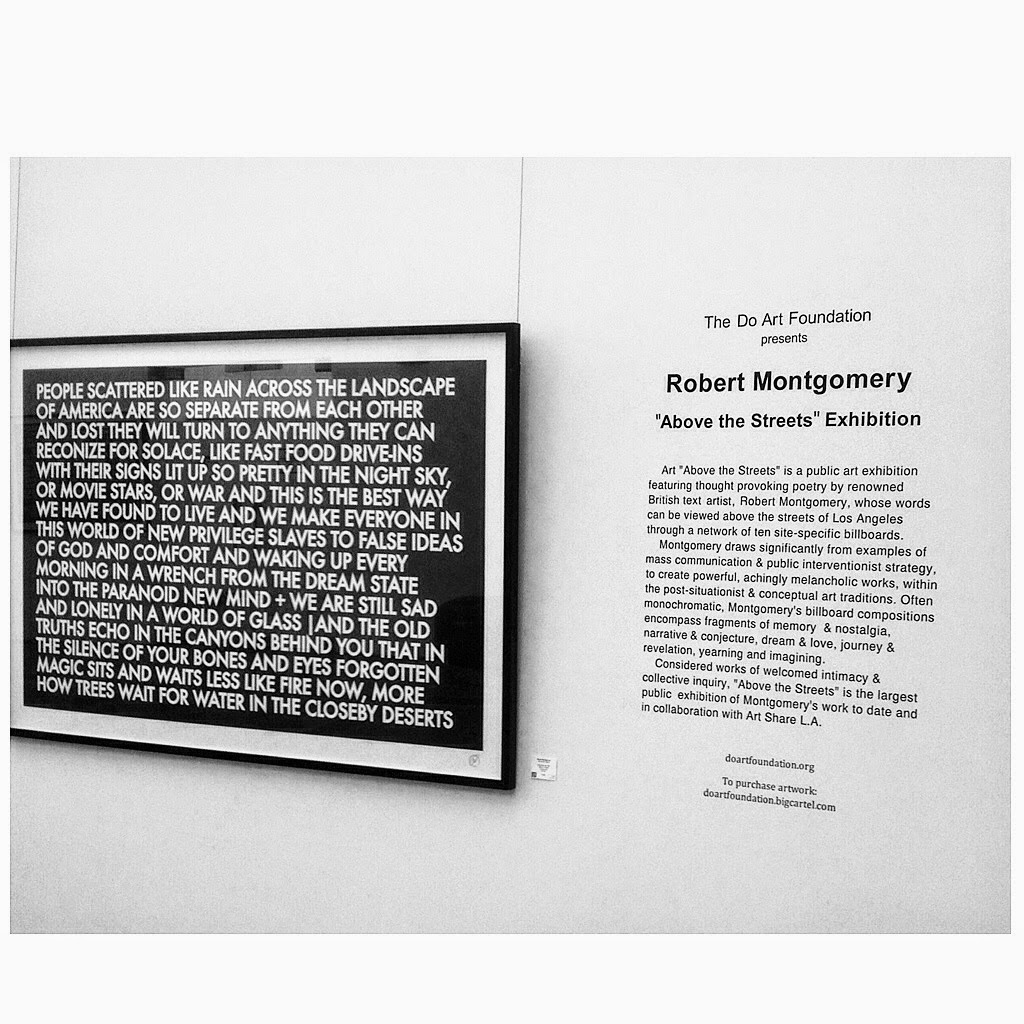 PEOPLE SCATTERED LIKE RAIN ACROSS THE LANDSCAPE
OF AMERICA ARE SO SEPARATE FROM EACH OTHER
AND LOST THEY WILL TURN TO ANYTHING THEY CAN
RECONIZE FOR SOLACE, LIKE FAST FOOD DRIVE-INS
WITH THEIR SIGNS LIT UP SO PRETTY IN THE NIGHT SKY,
OR MOVIE STARS, OR WAR AND THIS IS THE BEST WAY
WE HAVE FOUND TO LIVE AND WE MAKE EVERYONE IN
THIS WORLD OF NEW PRIVILEGE SLAVES TO FALSE IDEAS
OF GOD AND COMFORT AND WAKING UP EVERY
MORNING IN A WRENCH FROM THE DREAM STATE
INTO THE PARANOID NEW MIND + WE ARE STILL SAD
AND LONELY IN A WORLD OF GLASS | AND THE OLD
TRUTHS ECHO IN THE CANYONS BEHIND YOU THAT IN
THE SILENCE OF YOUR BONES AND EYES FORGOTTEN
MAGIC SITS AND WAITS LESS LIKE FIRE NOW, MORE
HOW TREES WAIT FOR WATER IN THE CLOSEBY DESERTS
The Do Art Foundation
presents
Robert Montgomery
"Above the Streets" Exhibition
Art "Above the Streets" is a public art exhibition
featuring thought provoking poetry by renowned
British text artist, Robert Montgomery, whose words
can be viewed above the streets of Los Angeles
through a network of ten site-specific billboards.
Montgomery draws significantly from examples of
mass communication & public interventionist strategy,
to create powerful, achingly melancholic works, within
the post-situationist & conceptual art traditions. Often
monochromatic, Montgomery's billboard compositions
encompass fragments of memory & nostalgia,
narrative & conjecture, dream & love, journey &
revelation, yearning and imagining.
Considered works of welcomed intimacy &
collective inquiry, "Above the Streets" is the largest
public exhibition of Montgomery's work to date and
in collaboration with Art Share L.A.
doartfoundation.org
To purchase artwork:
doartfoundation.bigcartel.com